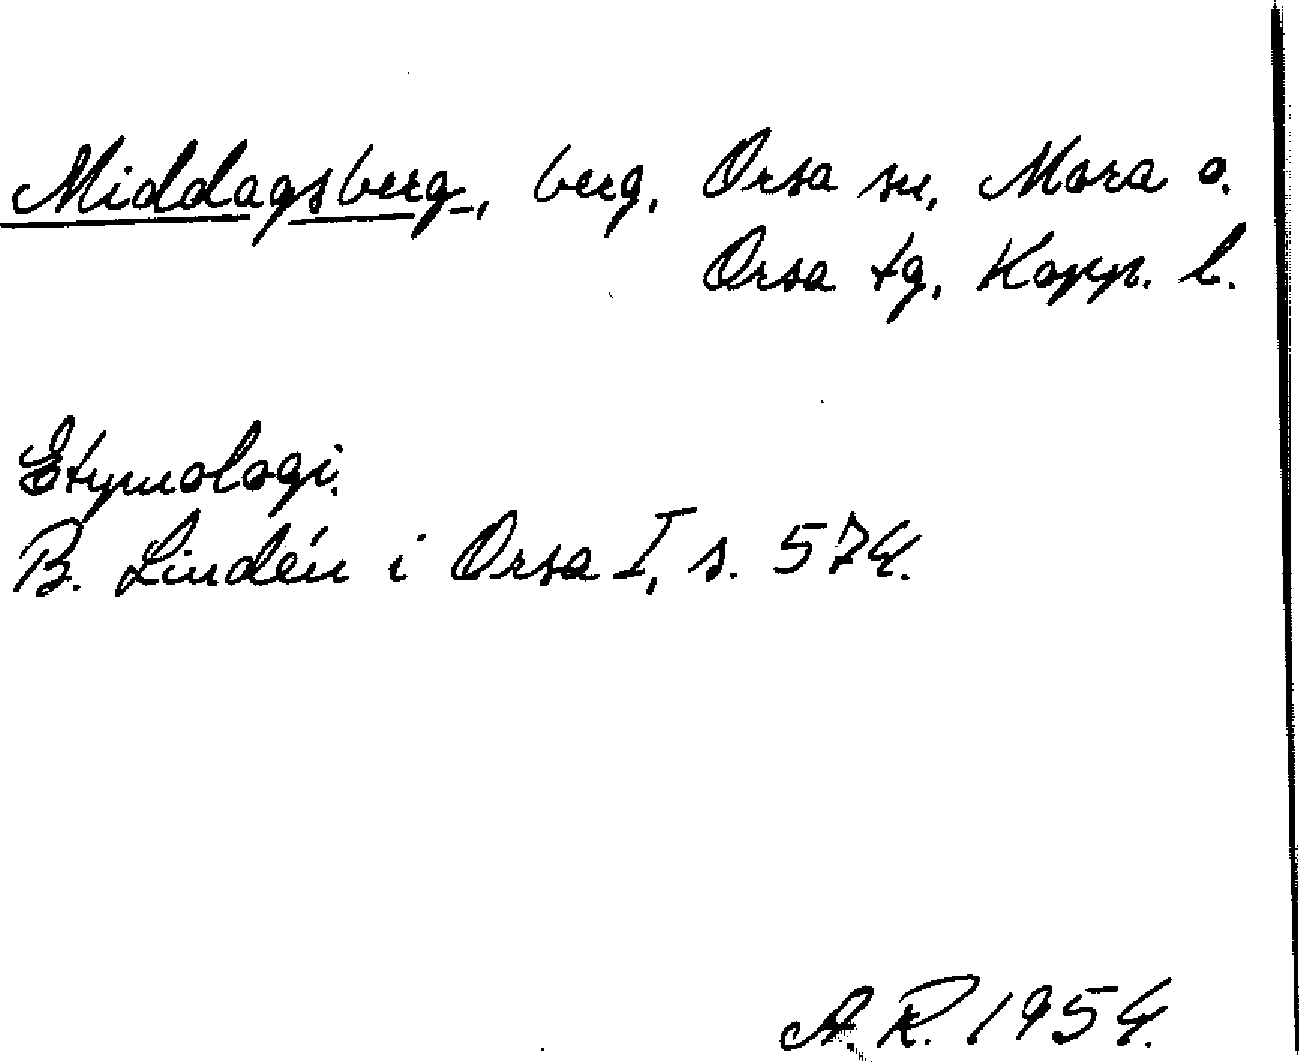 Middagsberg, berg, Orsa sn, Mora o.
Orsa tg, Kopp. l.
Etymologi.
B. Lindén i Orsa I, s. 574.
A.R. 1954.